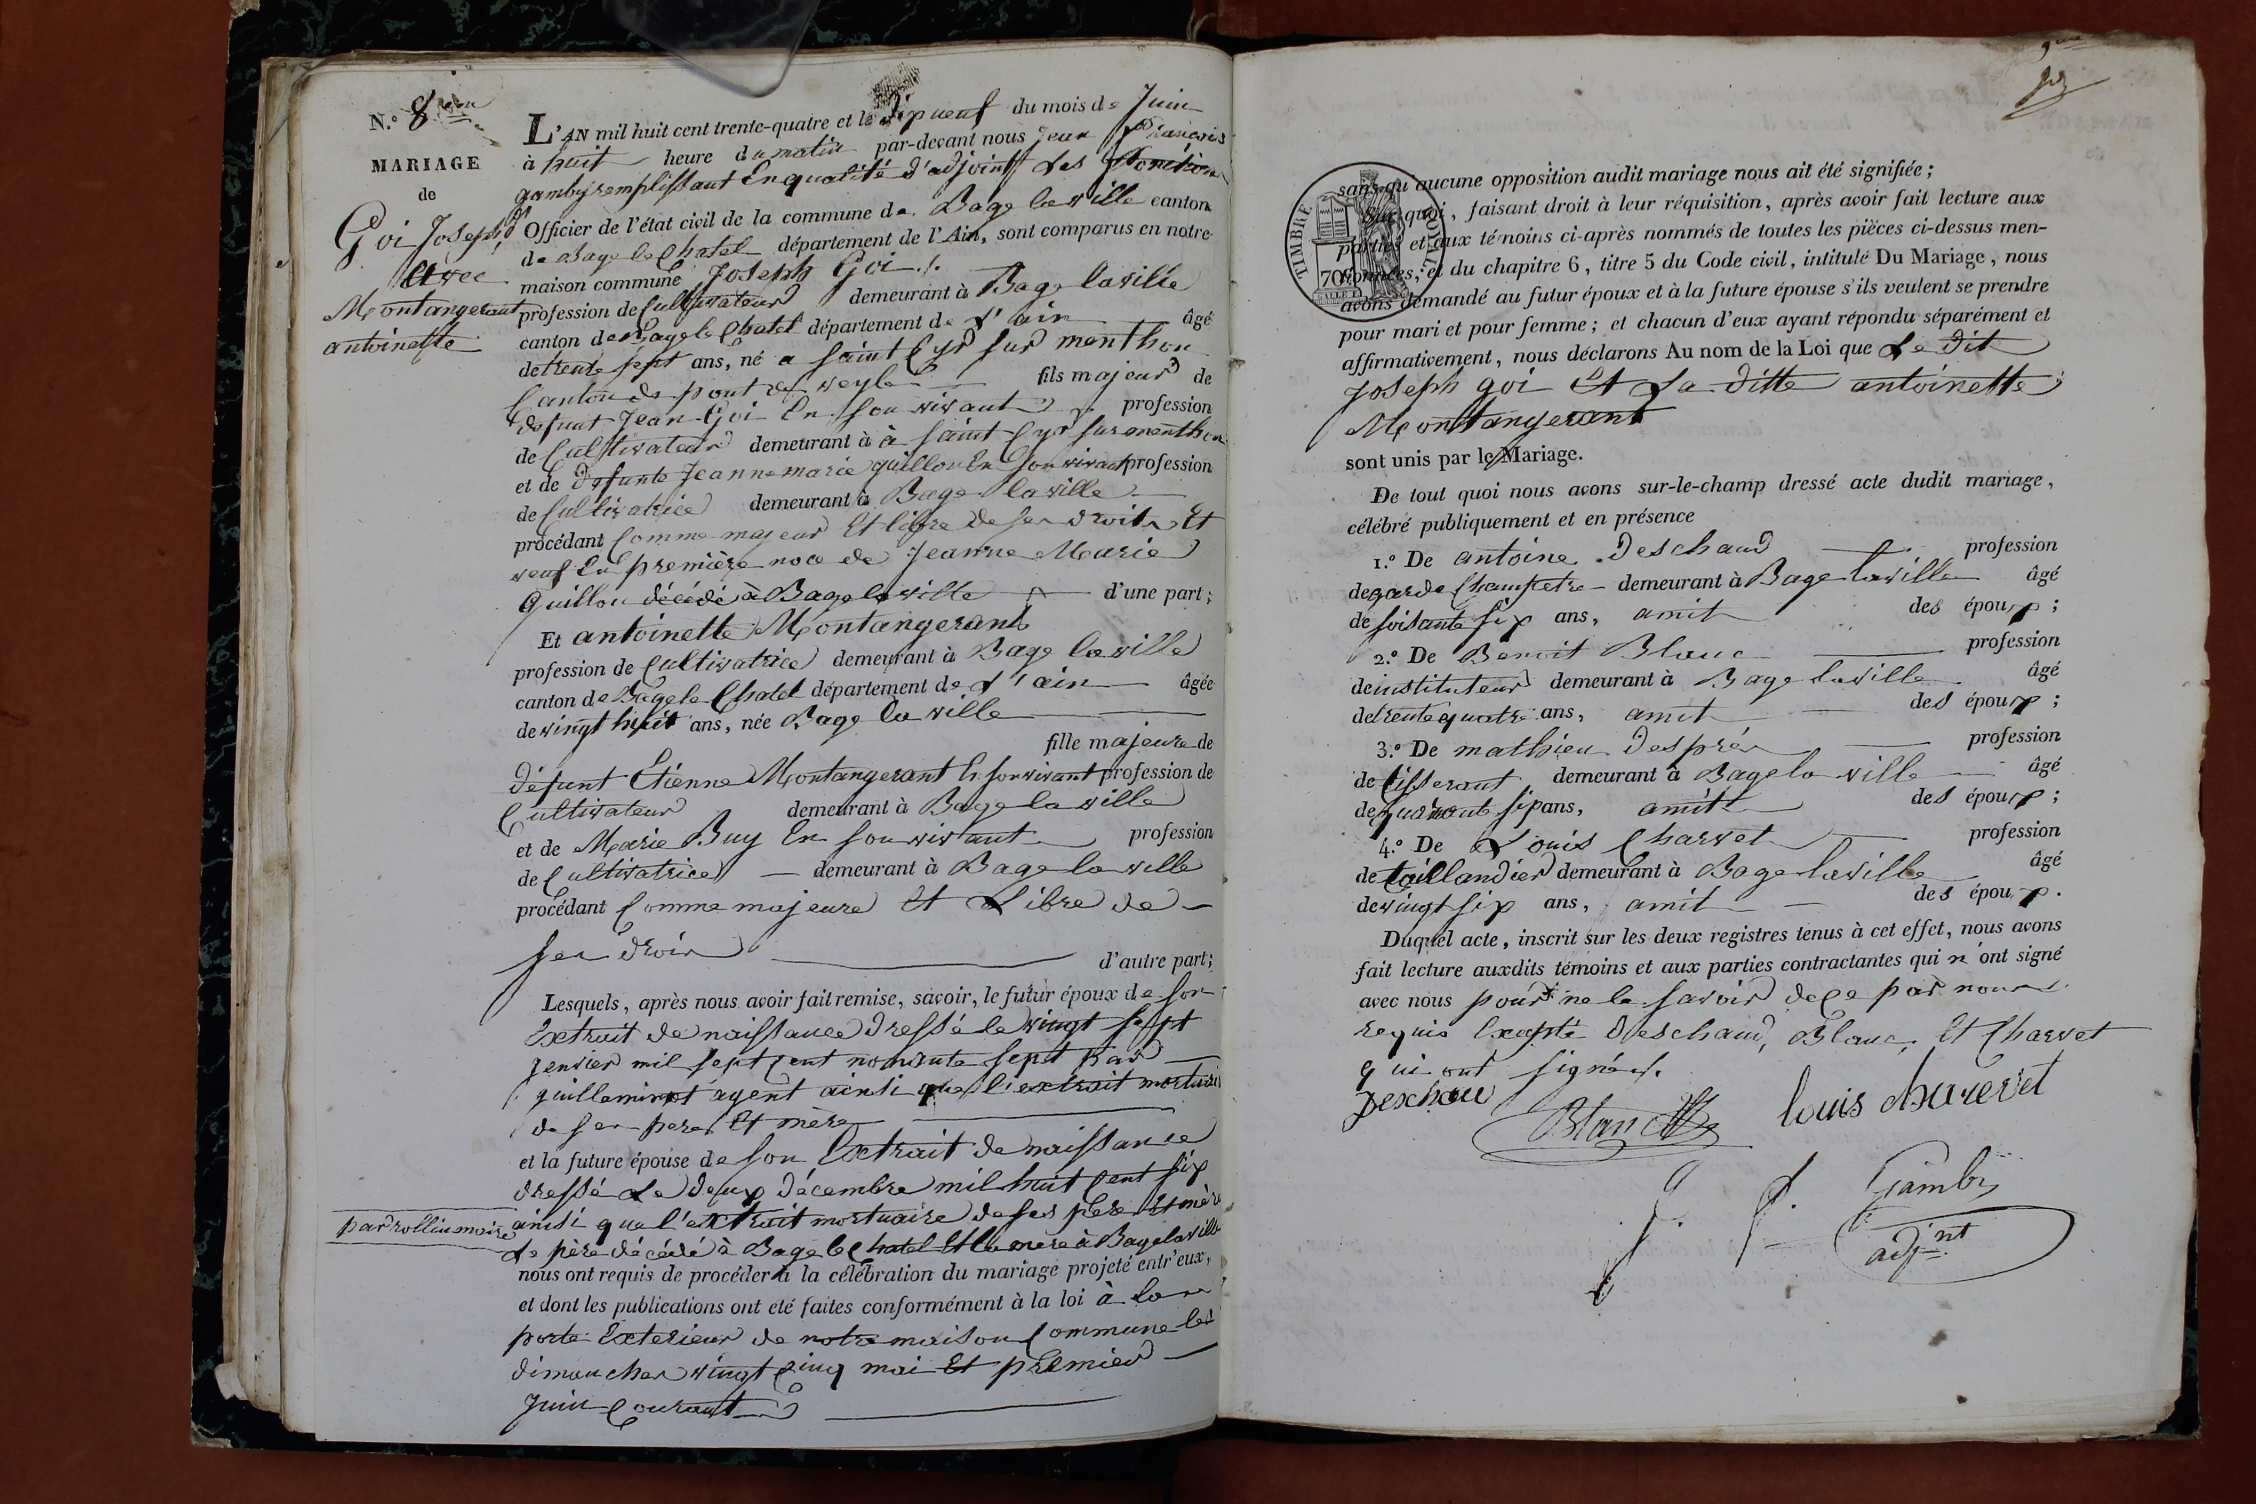 N.° 8
MARIAGE
de
Goi Joseph
avec
Montangerant
antoinette
L'AN mil huit cent trente-quatre et le dix neuf du mois de Juin
à huit heure du matin par-devant nous Jean François
gamby remplissant En qualité d'adjoint Les fonction
Officier de l'état civil de la commune de Bage laville canton
de Bage le Chatel département de l'Ain, sont comparus en notre
maison commune Joseph Goi
profession de Cultivateur demeurant à Bage laville
canton de Bage le Chatel département de L'ain âgé
de trente sept ans, né a saint Cyr sur menthon
Canton de pont de veyle fils majeur de
defunt Jean Goi En son vivant profession
de Cultivateur demeurant à à saint Cyr sur menthon
et de defunte Jeanne marie guillon En son vivant profession
de Cultivatrice demeurant à Bage laville
procédant Comme majeur Et libre de ses droits Et
veuf En première noce de Jeanne Marie
Guillon décédé à Bage laville d'une part;
Et antoinette Montangerant
profession de Cultivatrice demeurant à Bage laville
canton de Bage le Chatel département de L'ain âgée
de vingt huit ans, née Bage la ville
fille majeure de
défunt Etienne Montangerant En son vivant profession de
Cultivateur demeurant à Bage la ville
et de Marie Buy En son vivant profession
de Cultivatrice demeurant à Bage la ville
procédant Comme majeure Et Libre de
ses drois
d'autre part;
Lesquels, après nous avoir fait remise, savoir, le futur époux de son
Extrait de naissance dressé le vingt sept
Jenvier mil sept Cent nonante sept par
guilleminot agent ainsi que l'extrait mortuaire
de ses pere Et mère
et la future épouse de son Extrait de naissance
dressé Le deux décembre mil huit Cent six
par rollin maire
ainsi que l'extrait mortuaire de ses père Et mère
Le père décédé à Bage le Chatel Et la mere à Bage laville
nous ont requis de procéder à la célébration du mariage projeté entr'eux,
et dont les publications ont été faites conformément à la loi à la
porte Exterieur de notre maison Commune les
dimanches vingt Cinq mai Et premier
Juin Courant
TIMBRE ROYAL
70
sans qu'aucune opposition audit mariage nous ait été signifiée;
Sur quoi, faisant droit à leur réquisition, après avoir fait lecture aux
parties et aux témoins ci-après nommés de toutes les pièces ci-dessus men-
tionnées, et du chapitre 6, titre 5 du Code civil, intitulé Du Mariage, nous
avons demandé au futur époux et à la future épouse s'ils veulent se prendre
pour mari et pour femme; et chacun d'eux ayant répondu séparément et
affirmativement, nous déclarons Au nom de la Loi que Le dit
Joseph goi Et La ditte antoinette
Montangerant
sont unis par le Mariage.
De tout quoi nous avons sur-le-champ dressé acte dudit mariage,
célébré publiquement et en présence
1.° De antoine Deschaud profession
de garde Champetre demeurant à Bage laville âgé
de soisante six ans, amit des époux;
2.° De Benoit Blanc profession
de instituteur demeurant à Bage laville âgé
de trente quatre ans, amit des époux;
3.° De mathieu Desprér profession
de tisserant demeurant à Bage la ville âgé
de quarante six ans, amit des époux;
4.° De Louis Charvet profession
de taillandier demeurant à Bage laville âgé
de vingt six ans, amit des époux.
Duquel acte, inscrit sur les deux registres tenus à cet effet, nous avons
fait lecture auxdits témoins et aux parties contractantes qui n'ont signé
avec nous pour ne le savoir de Ce par nous
requis Excepté Deschaud, Blanc, Et Charvet
qui ont signér.
Deschau
Blanc
louis charvet
J. f. Gamby
adj.nt